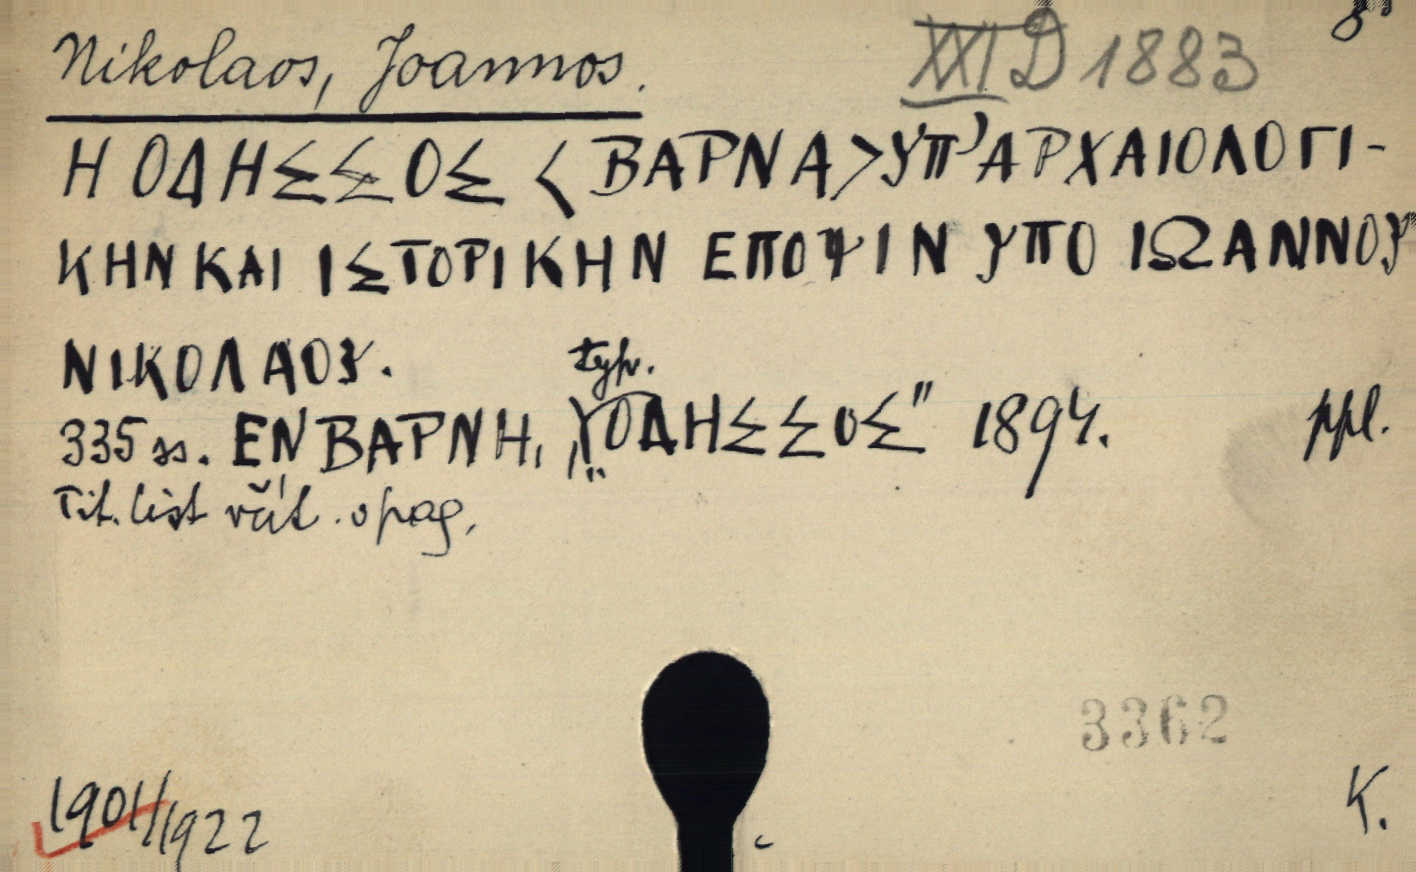 Nikolaos, Joannos.
XXI D 1883
8°
Η ΟΔΗΣΣΟΣ <ΒΑΡΝΑ> ΥΠ' ΑΡΧΑΙΟΛΟΓΙ-
ΚΗΝ ΚΑΙ ΙΣΤΟΡΙΚΗΝ ΕΠΟΨΙΝ ΥΠΟ ΙΩΑΝΝΟΥ
ΝΙΚΟΛΑΟΥ.
335 ss. ΕΝ ΒΑΡΝΗ, typ. „ΟΔΗΣΣΟΣ" 1894. ppl.
Tit. list včít. opag.
3362
1901/1922
K.